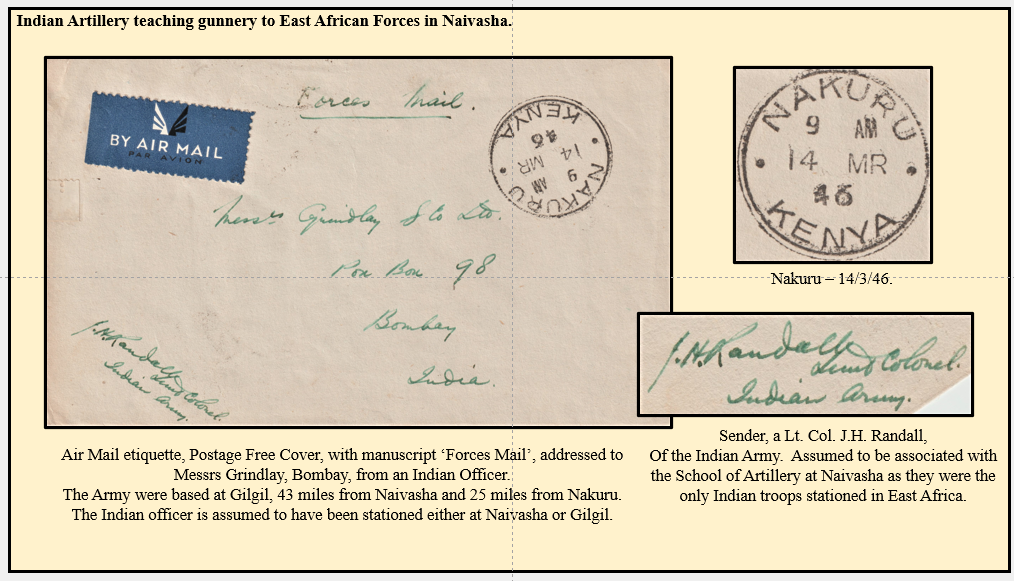 Indian Artillery teaching gunnery to East African Forces in Naivasha.
Forces Mail.
BY AIR MAIL
PAR AVION
NAKURU
9 AM
14 MR
46
KENYA
Messrs Grindlay & Co Ltd.
Box 98
Bombay
India.
J.H. Randall
Lieut Colonel.
Indian Army.
NAKURU
9 AM
14 MR
46
KENYA
Nakuru – 14/3/46.
J.H. Randall
Lieut Colonel.
Indian Army.
Air Mail etiquette, Postage Free Cover, with manuscript ‘Forces Mail’, addressed to
Messrs Grindlay, Bombay, from an Indian Officer.
The Army were based at Gilgil, 43 miles from Naivasha and 25 miles from Nakuru.
The Indian officer is assumed to have been stationed either at Naivasha or Gilgil.
Sender, a Lt. Col. J.H. Randall,
Of the Indian Army.  Assumed to be associated with
the School of Artillery at Naivasha as they were the
only Indian troops stationed in East Africa.